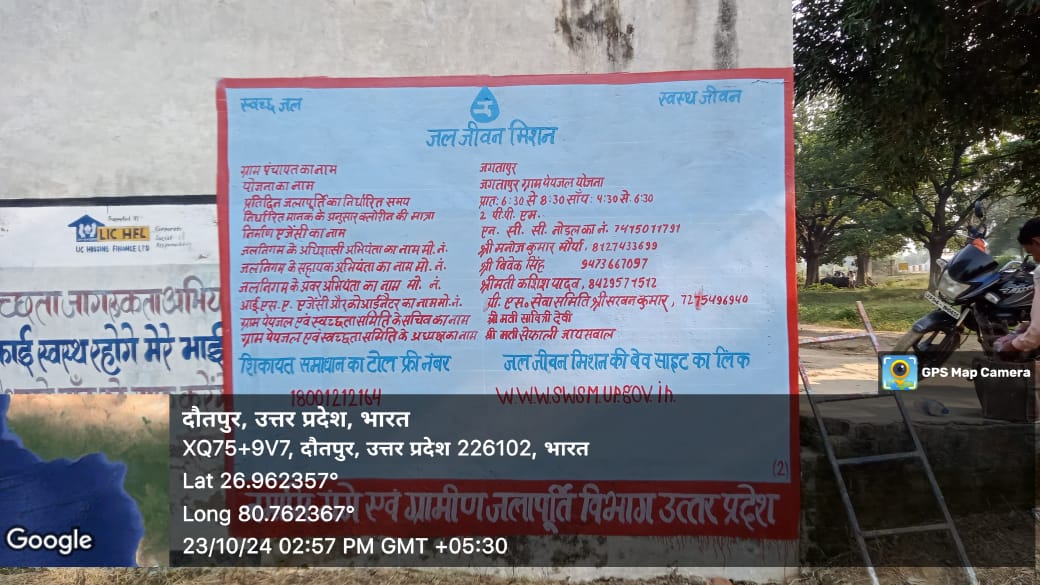 स्वच्छ जल
स्वस्थ जीवन
जल जीवन मिशन
ग्राम पंचायत का नाम जगतापुर
योजना का नाम जगतापुर ग्राम पेयजल योजना
प्रतिदिन जलापूर्ति का निर्धारित समय प्रात: 6:30 से 8:30 सॉय: 4:30 से 6:30
निर्धारित मानक के अनुसार क्लोरीन की मात्रा 2 पी. पी. एम.
निर्माण एजेंसी का नाम एन. सी. सी. नोडल का नं. 7415011791
जलनिगम के अधिशासी अभियंता का नाम मो. नं. श्री मनोज कुमार मौर्या. 8127433699
जलनिगम के सहायक अभियंता का नाम मो. नं. श्री विवेक सिंह 9473667097
जलनिगम के अवर अभियंता का नाम मो. नं. श्रीमती कशिश यादव, 8429571512
आई.एस.ए. एजेंसी और कोआर्डिनेटर का नाम मो. नं. पी. एस. सेवा समिति श्री सरबन कुमार, 7275496940
ग्राम पेयजल एवं स्वच्छता समिति के सचिव का नाम श्री मती सावित्री देवी
ग्राम पेयजल एवं स्वच्छता समिति के अध्यक्ष का नाम श्री मती सेफाली जायसवाल
शिकायत समाधान का टोल फ्री नंबर जल जीवन मिशन की बेव साइट का लिंक
18001212164 www.swsm.up.gov.in.
(2)
एवं ग्रामीण जलापूर्ति विभाग उत्तर प्रदेश
Supported By :
LIC HFL
LIC HOUSING FINANCE LTD
Corporate
Social
Responsibility
च्छता जागरूकता अभिय
फाई स्वस्थ रहोगे मेरे भाई
GPS Map Camera
दौतपुर, उत्तर प्रदेश, भारत
XQ75+9V7, दौतपुर, उत्तर प्रदेश 226102, भारत
Lat 26.962357°
Long 80.762367°
23/10/24 02:57 PM GMT +05:30
Google